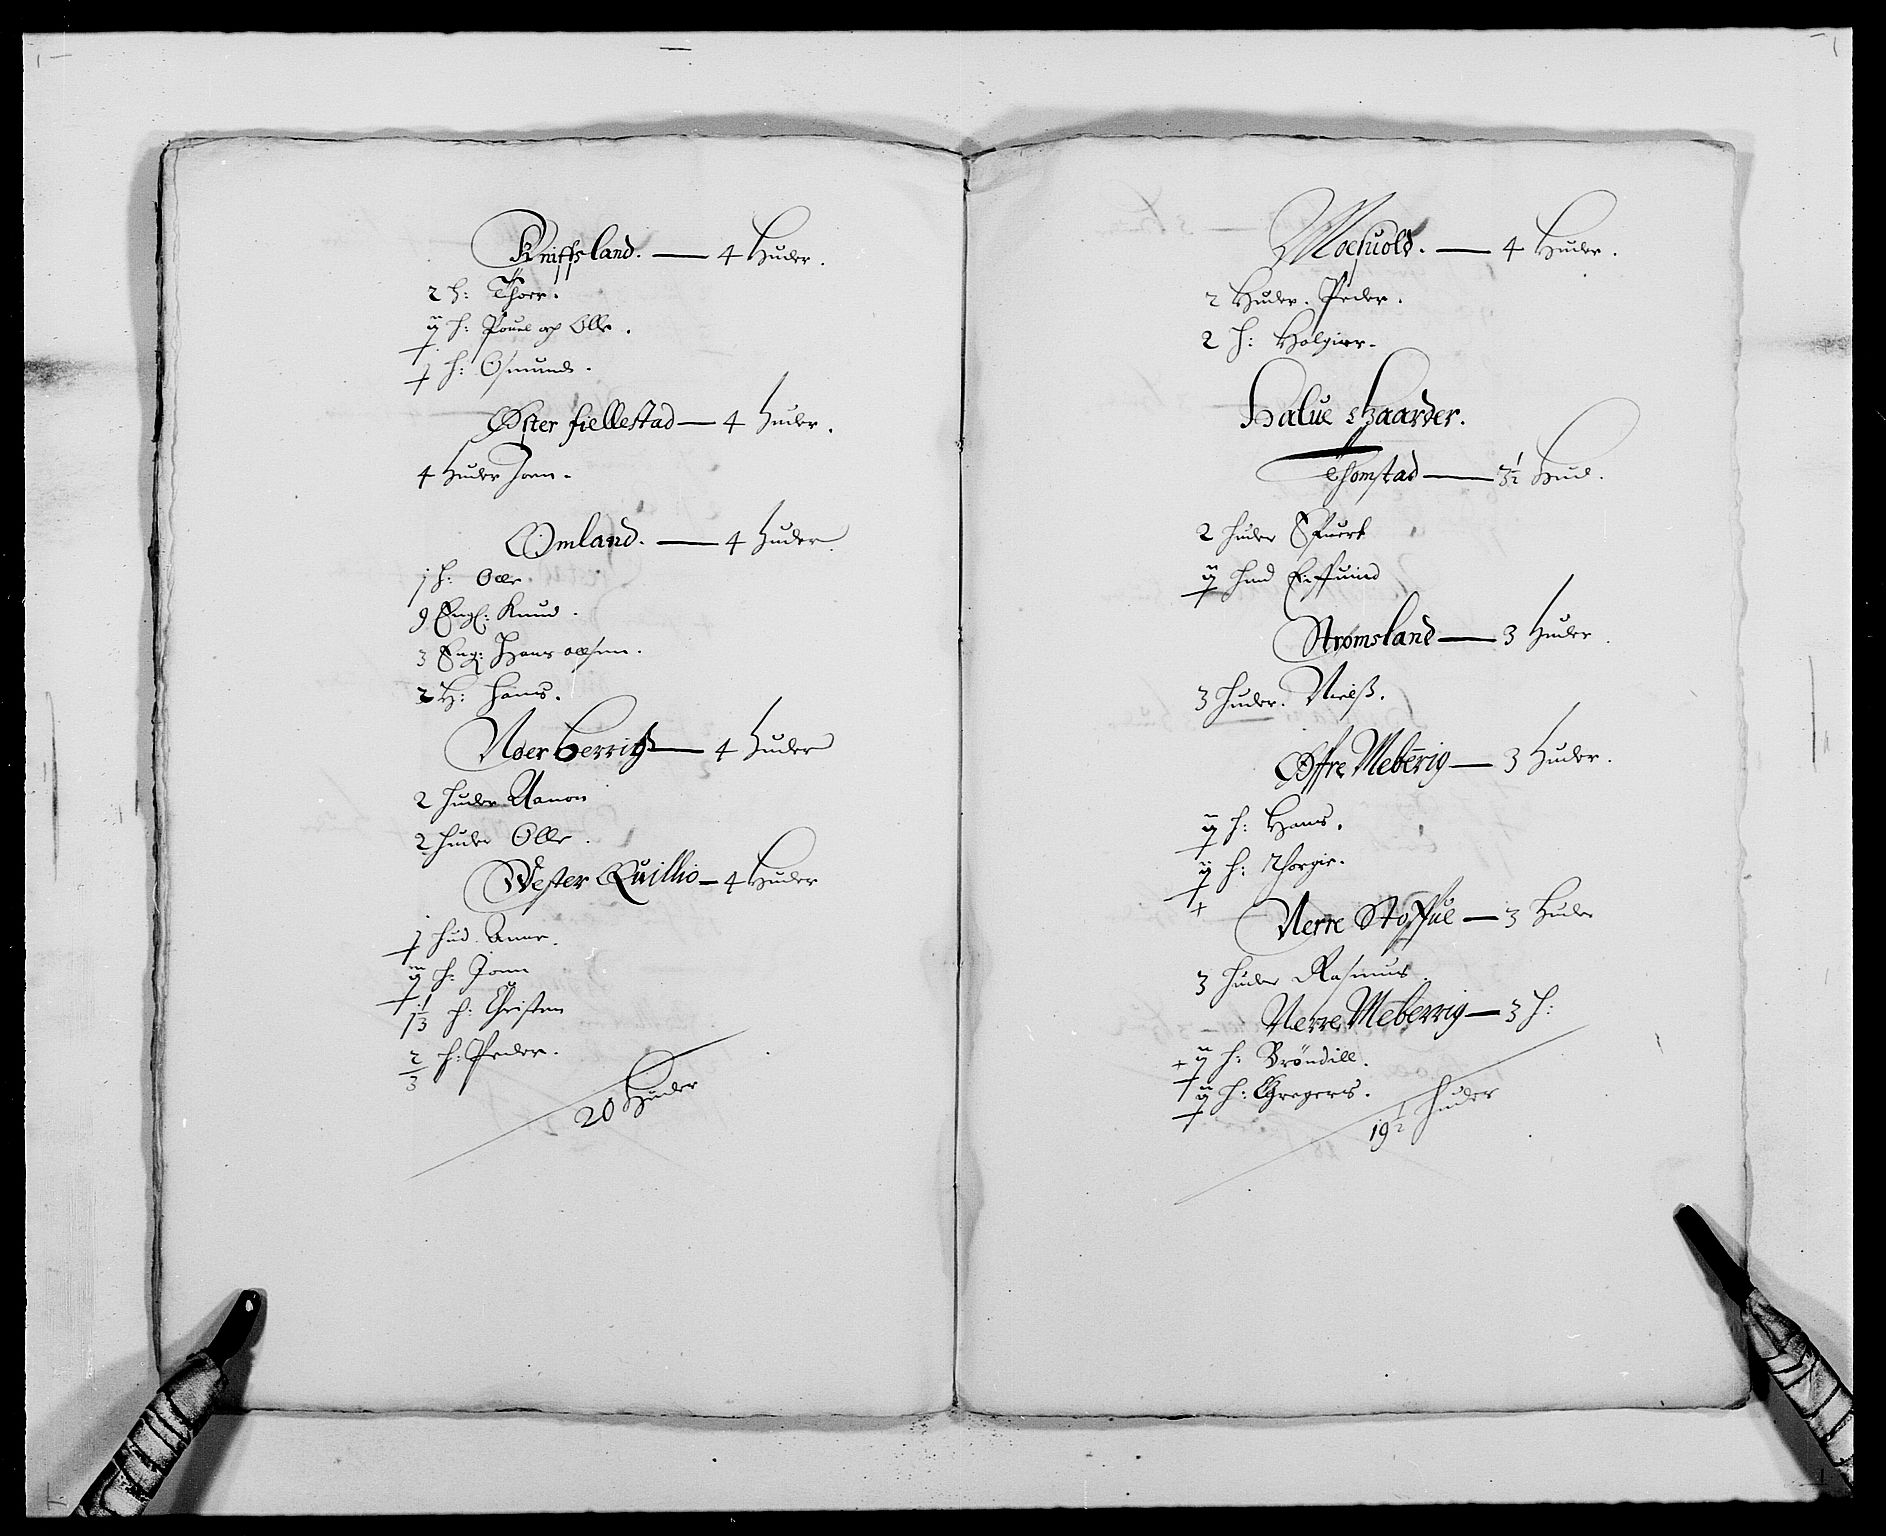 Kniffsland. — 4 Huder.
2 h: Thoer.
ÿ h: Pouel og Olle.
j h: Osmund.
Øster fiellestad — 4 huder.
4 Huder Joen.
Omland. — 4 huder
j h: Olle
9 Engl: Knud.
3 Eng: Hans olsen.
2 H: hans.
Noer Berrig — 4 huder
2 huder Aanon
2 huder Olle.
Wester Quillio — 4 Huder
j hud. Anne.
ÿ h: Jonn
1 1/3 h: Christen
2/3 h: Peder.
20 Huder
Moesuold. — 4 Huder.
2 Huder. Peder.
2 h: Holgier.
Halue Gaarder.
Thomstad — 3 1/2 Hud.
2 huder
ÿ hud
Strømsland — 3 huder.
3 huder. Nielß.
Øffre Meberig — 3 Huder.
ÿ h: Hans.
ÿ h: Thorgie.
Nerre — 3 Huder
3 huder Rasmus
Nerre Meberrig — 3 h:
+ ÿ h: Brøndill.
ÿ h: Gregers.
19 1/2 huder